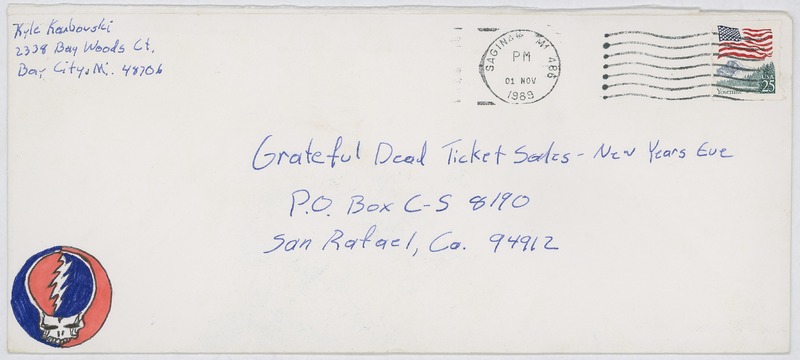 Kyle Karbowski
2338 Bay Woods Ct.
Bay City, Mi. 48706
SAGINAW MI 486
PM
01 NOV
1989
USA
25
Yosemite
Grateful Dead Ticket Sales - New Years Eve
P.O. Box C-S 8190
San Rafael, Ca. 94912